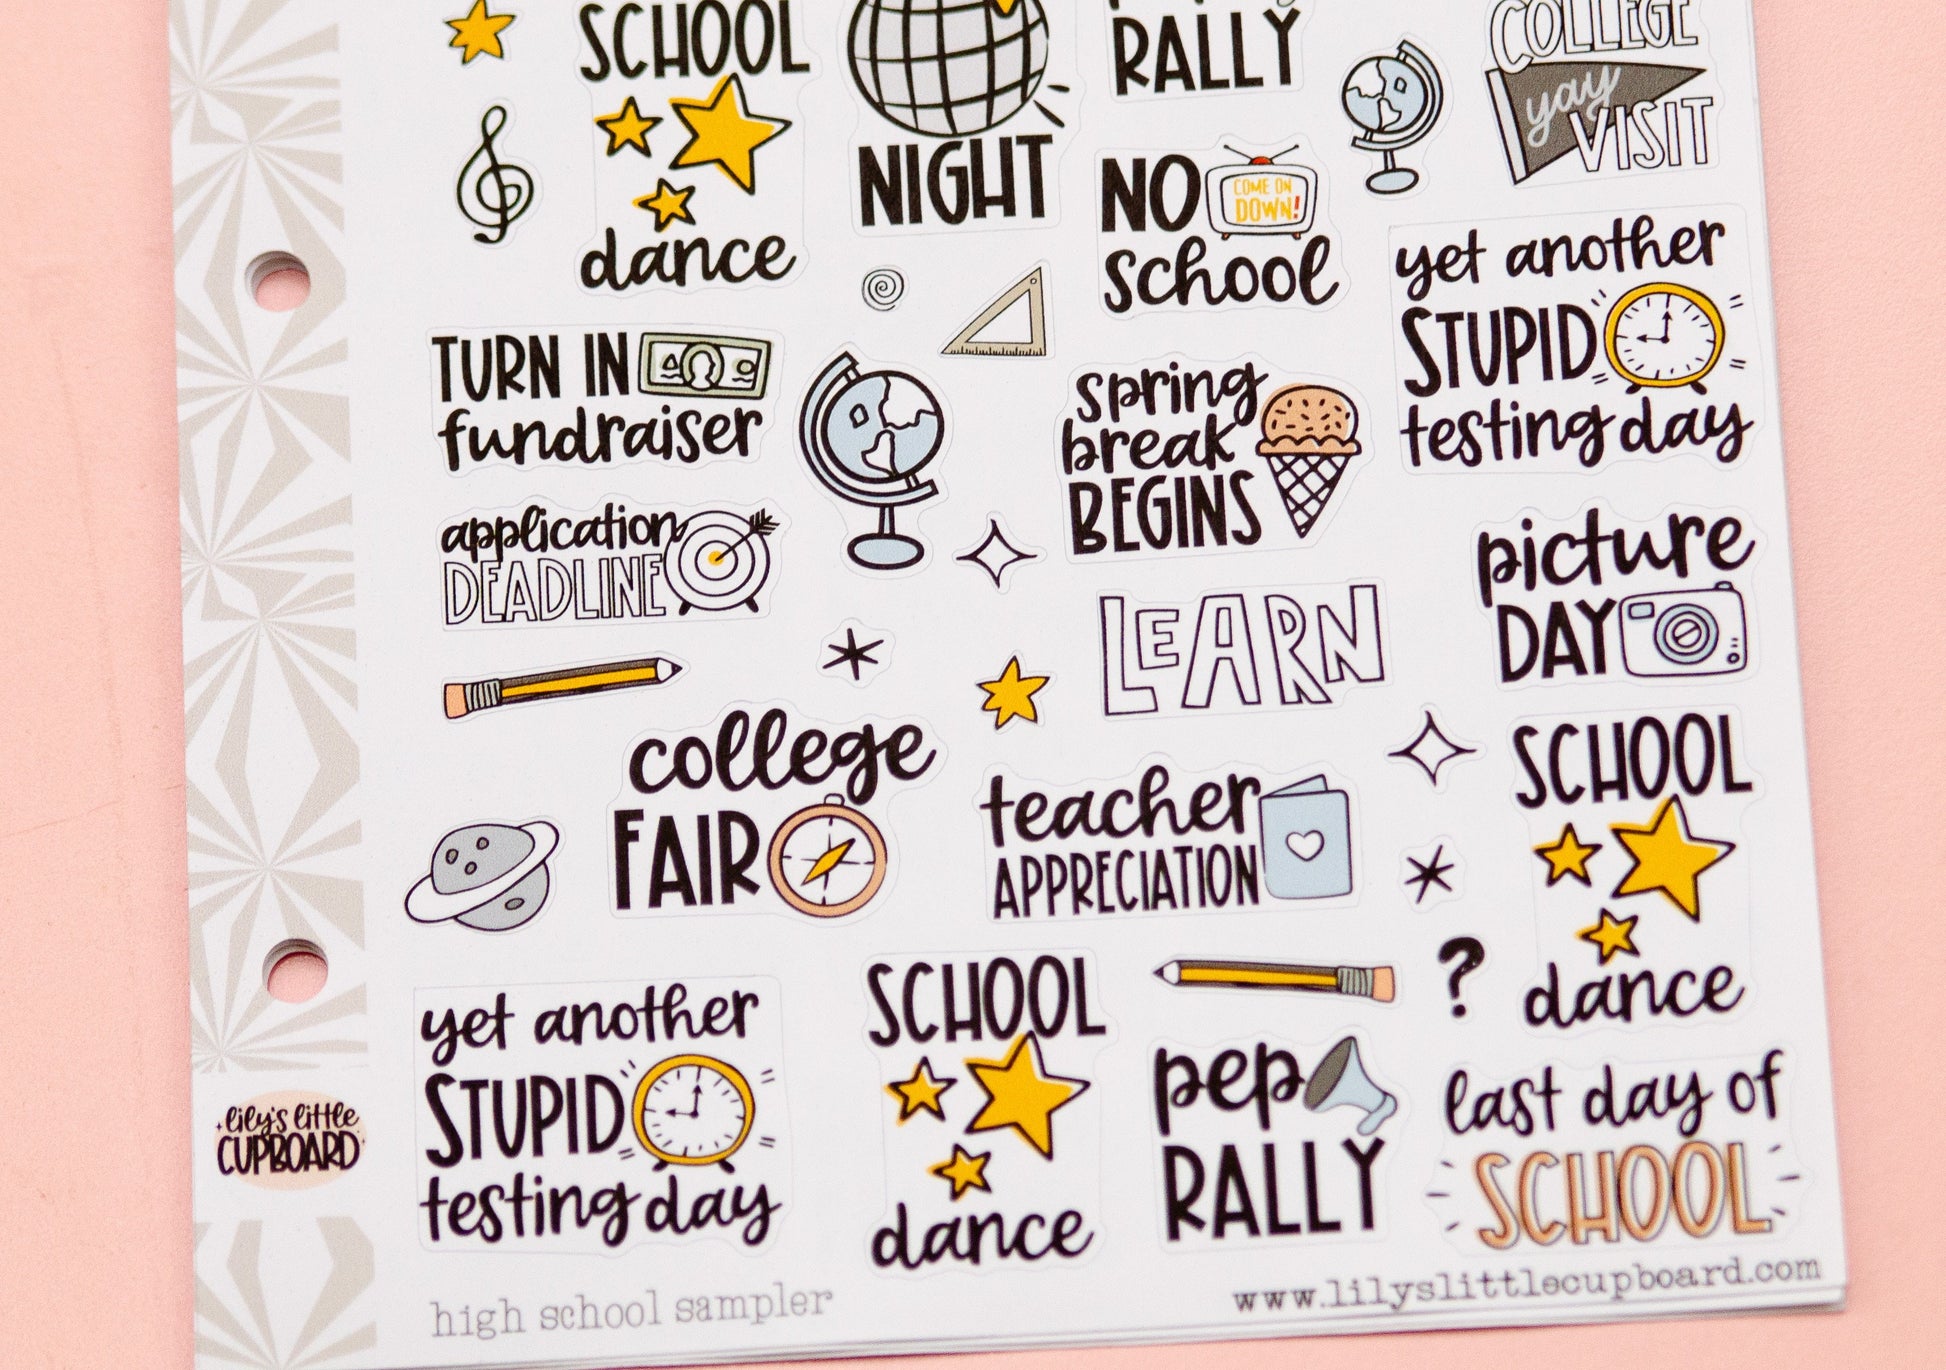 SCHOOL
dance
NIGHT
RALLY
COLLEGE
yay
VISIT
NO
COME ON
DOWN!
school
yet another
STUPID
testing day
TURN IN
fundraiser
spring
break
BEGINS
application
DEADLINE
picture
DAY
LEARN
college
FAIR
teacher
APPRECIATION
SCHOOL
dance
yet another
STUPID
testing day
SCHOOL
dance
?
pep
RALLY
last day of
SCHOOL
lily's little
CUPBOARD
high school sampler
www.lilyslittlecupboard.com